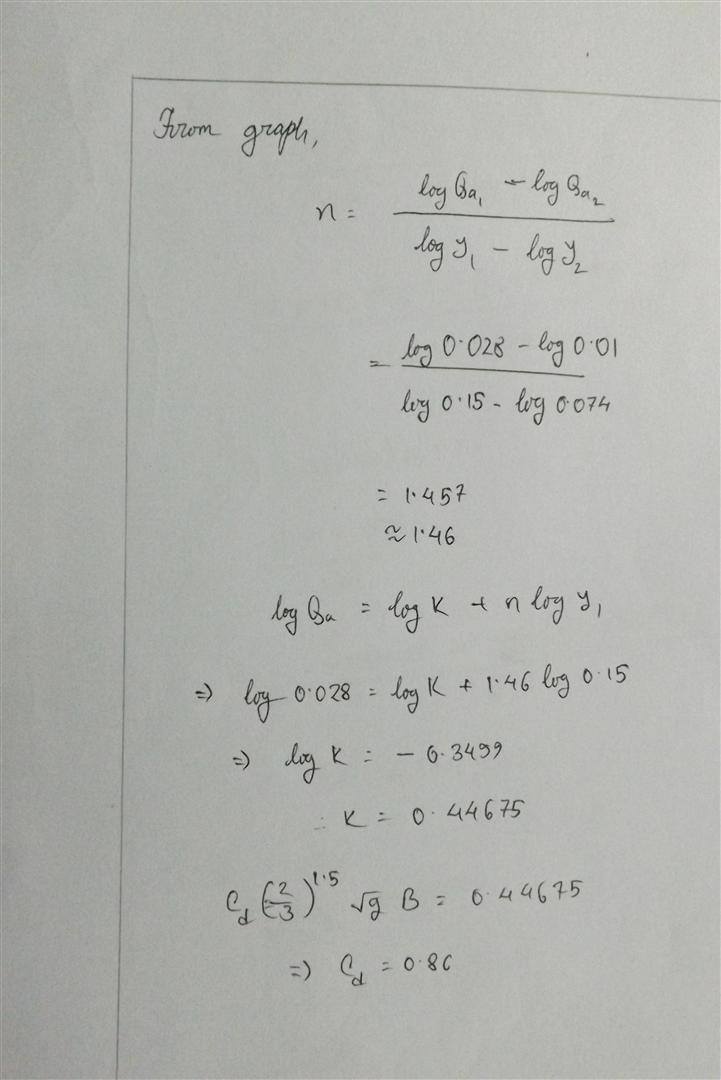 From graph,
n = (log Qa₁ - log Qa₂) / (log y₁ - log y₂)
= (log 0.028 - log 0.01) / (log 0.15 - log 0.074)
= 1.457
≈ 1.46
log Qa = log K + n log y₁
⇒ log 0.028 = log K + 1.46 log 0.15
⇒ log K = - 0.3499
∴ K = 0.44675
C_d (2/3)^1.5 √g B = 0.44675
⇒ C_d = 0.86